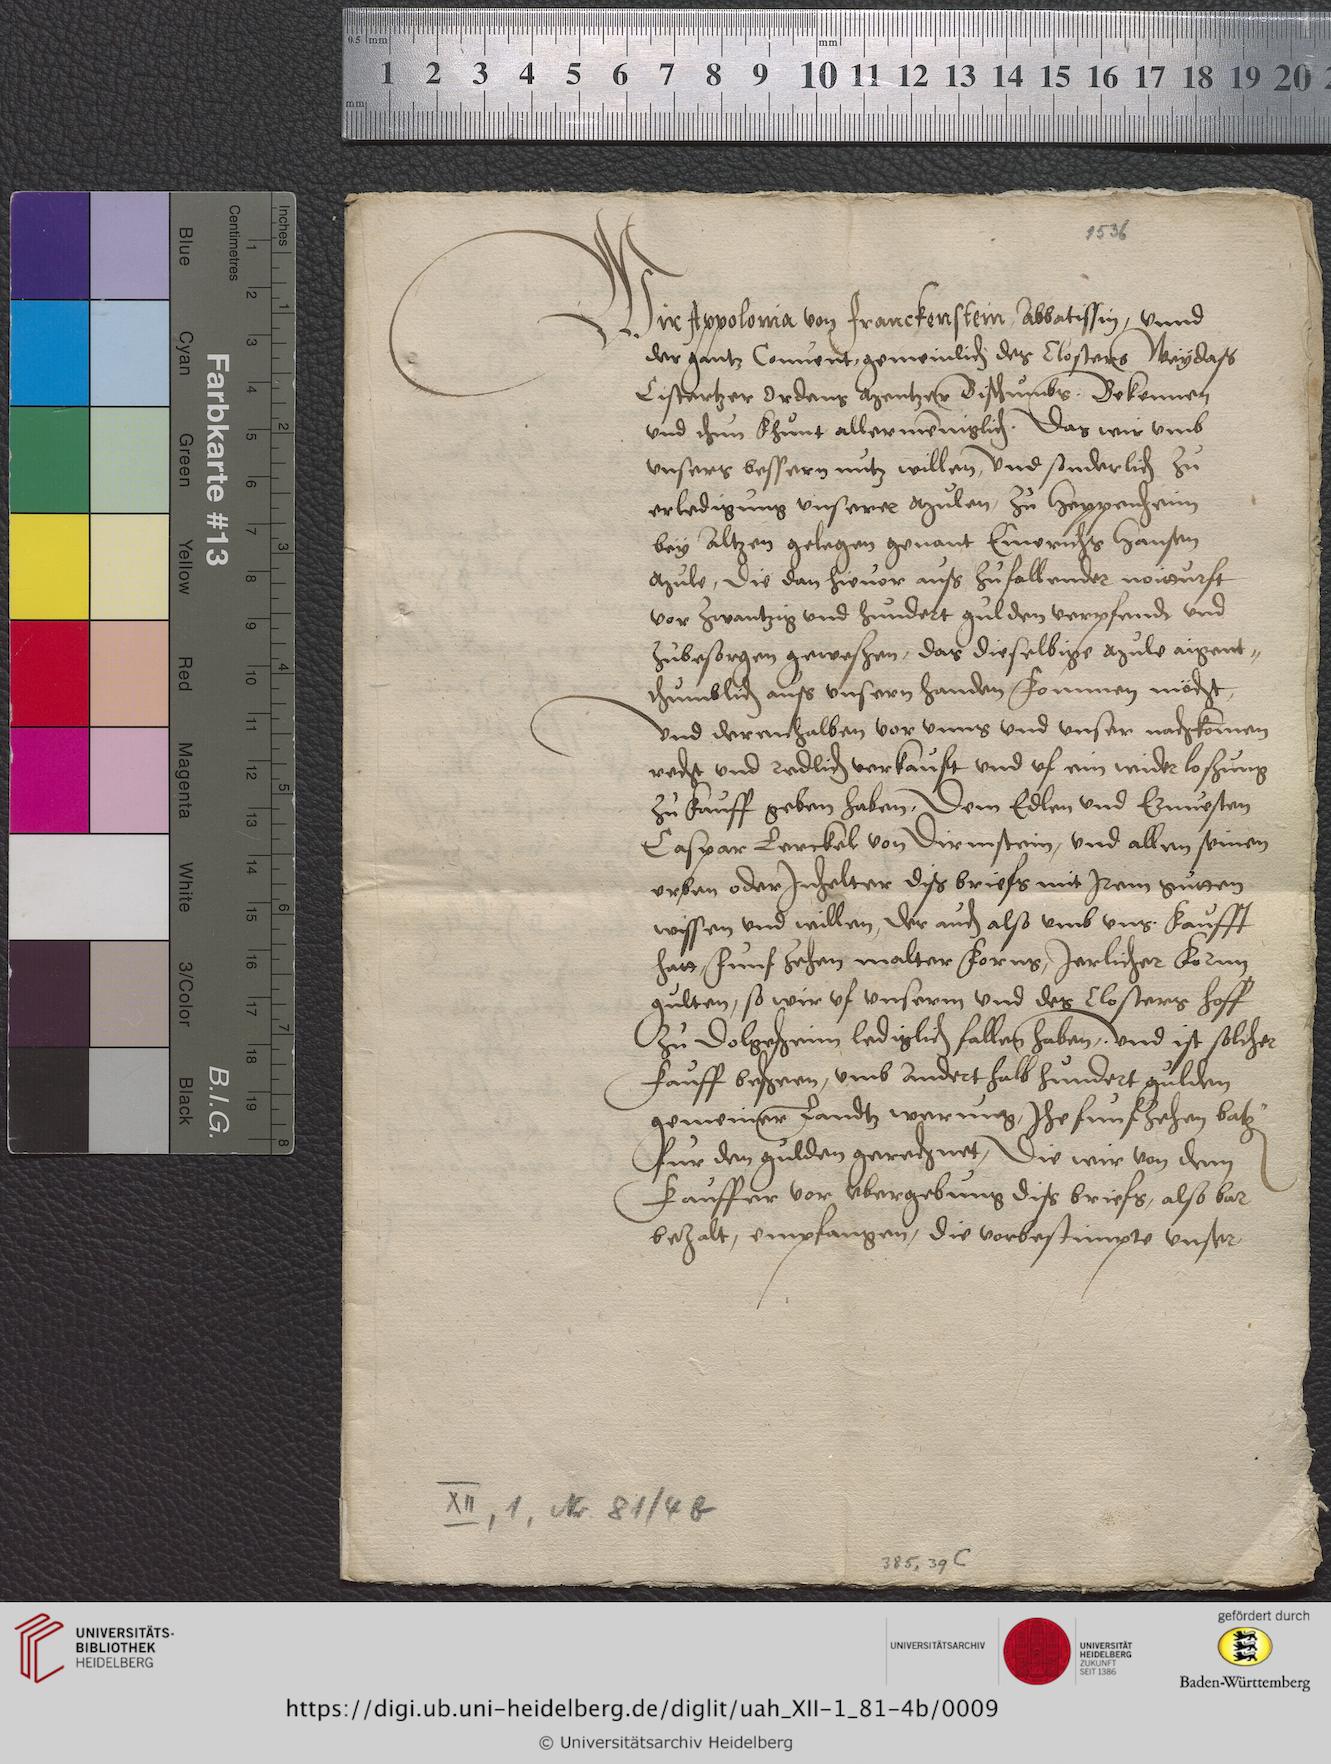 1536
Wir Appolonia von Franckenstein, Abbatissin, vnnd
der gantz Conuent, gemeinlich des Closters Weydass
Cistertzer Ordens Mentzer Bisthumbs. Bekennen
vnd thun khunt allermeniglich. Das wir vmb
vnsers bessern nutz willen, vnd sonderlich zu
erledigung vnserer Mulen, zu Heppenheim
bey Altzen gelegen genant Emerichs Hansen
Mule, die dan hieuor auss zufallender notturft
vor zwantzig vnd hundert gulden verpfendt vnd
zubesorgen geweszen, das dieselbige Mule aigent„
thumblich auss vnsern handen kommen möcht,
vnd derenthalben vor vnns vnd vnser nachkomen
recht vnd redlich verkaufft vnd vf ein wider loszung
zu kauff geben haben, Dem Edlen vnd Ernuesten
Caspar Lerckel von Dirmstein, vnd allen seinen
erben oder Inhelter diss briefs mit Irem gutten
wissen vnd willen, der auch also vmb vns kaufft
hatt, funfzehen malter korns, Jerlicher korn
gulten, so wir vf vnserm vnd des Closters hoff
zu Dolgeszheim lediglich fallen haben, vnd ist solcher
kauff bescheen, vmb andert halb hundert gulden
gemeiner Landtz werung, Ihe funfzehen batz
fur den gulden gerechnet, Die wir von dem
kauffer vor vbergebung diss briefs, also bar
bezalt, empfangen, die vorbestimpte vnser
XII, 1, Nr 81/4 b
385, 39 C
0.5 mm
mm
mm
1 2 3 4 5 6 7 8 9 10 11 12 13 14 15 16 17 18 19 20
Farbkarte #13
B.I.G.
Centimetres
Inches
Blue
Cyan
Green
Yellow
Red
Magenta
White
3/Color
Black
1 2 3 4 5 6 7 8 9 10 11 12 13 14 15 16 17 18 19
1 2 3 4 5 6 7 8
UNIVERSITÄTS-
BIBLIOTHEK
HEIDELBERG
UNIVERSITÄTSARCHIV
UNIVERSITÄT
HEIDELBERG
ZUKUNFT
SEIT 1386
gefördert durch
Baden-Württemberg
https://digi.ub.uni-heidelberg.de/diglit/uah_XII-1_81-4b/0009
© Universitätsarchiv Heidelberg